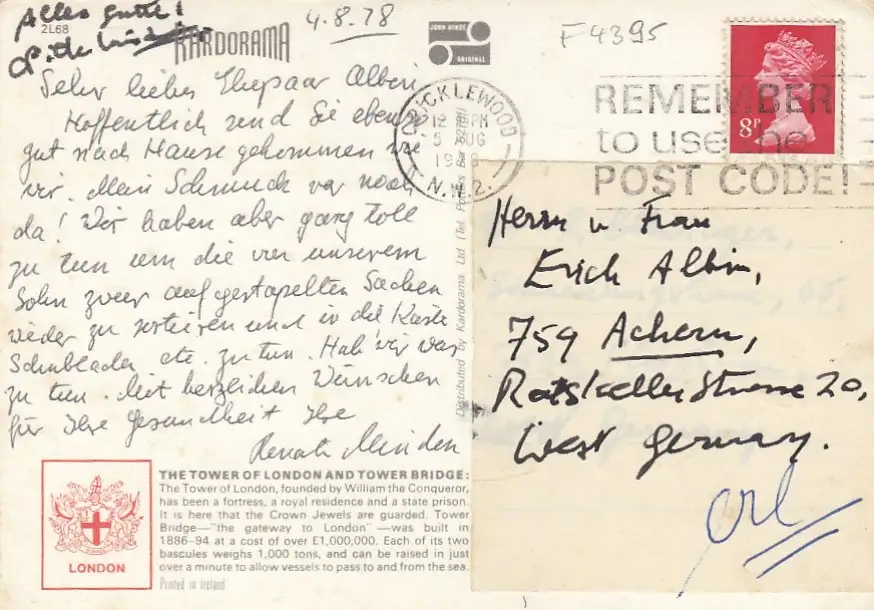 Alles Gute!
2L68
4.8.78
KARDORAMA
JOHN HINDE
ORIGINAL
F4395
Sehr liebes Ehepaar Albin,
Hoffentlich sind Sie ebenso
gut nach Hause gekommen wie
wir. Mein Schmuck war noch
da! Wir haben aber ganz toll
zu tun um die von unserem
Sohn zwar aufgestapelten Sachen
wieder zu sortieren und in die Kaste
Schublade etc. zu tun. Hab' wir was
zu tun. Mit herzlichen Wünschen
für Ihre Gesundheit Ihre
Renate Minden
CRICKLEWOOD
12 PM
5 AUG
1978
N.W.2.
REMEMBER
to use the
POST CODE!
8P
Distributed by Kardorama Ltd (Tel. Potters Bar
Herrn u Frau
Erich Albin,
759 Achern,
Ratskellerstrasse 20,
West Germany.
LONDON
THE TOWER OF LONDON AND TOWER BRIDGE:
The Tower of London, founded by William the Conqueror,
has been a fortress, a royal residence and a state prison.
It is here that the Crown Jewels are guarded. Tower
Bridge—"the gateway to London"—was built in
1886-94 at a cost of over £1,000,000. Each of its two
bascules weighs 1,000 tons, and can be raised in just
over a minute to allow vessels to pass to and from the sea.
Printed in Ireland